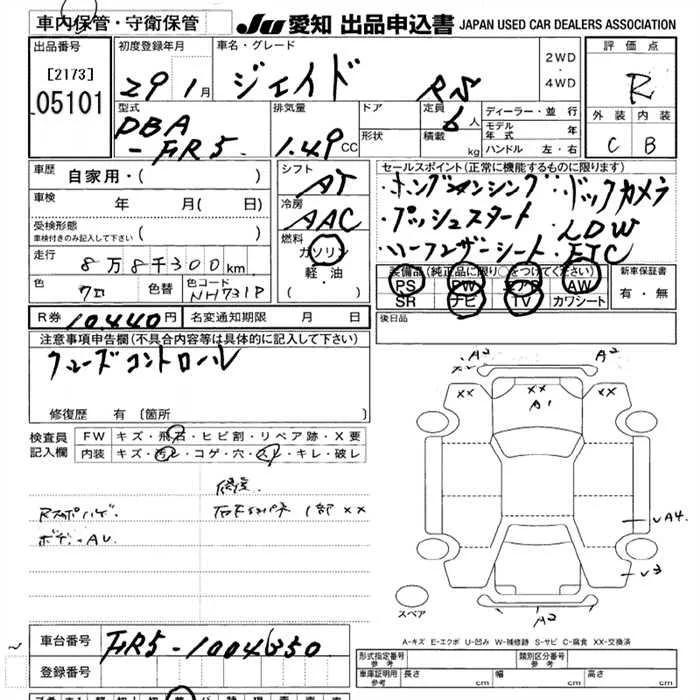 車内保管・守衛保管 JU 愛知 出品申込書 JAPAN USED CAR DEALERS ASSOCIATION
出品番号 初度登録年月 車名・グレード 評価点
[2173] 29 1月 ジェイド RS 2WD・4WD R
05101 型式 排気量 ドア 定員 6人 ディーラー・並 行 外装 内装
DBA 1.49cc 形状 積載 kg モデル年式 年 C B
-FR5 ハンドル 左・右
車歴 自家用・( ) シフト AT セールスポイント(正常に機能するものに限ります)
車検 年 月( 日) 冷房 AAC ・ホンダセンシング・ドックカメラ
受検形態 車検付きのみ記入して下さい ( ) 燃料 ・プッシュスタート・LDW
走行 8万8千300km ガソリン ・ハーフレザーシート・ETC
色 色替 色コード NH731P 軽・油 ( ) 装備品(純正品に限り○をつけてください) 新車保証書
クロ PS PW エアB AW 有・無
SR ナビ TV カワシート
R券 10,440円 名変通知期限 月 日 後日品
注意事項申告欄(不具合内容等は具体的に記入して下さい)
クルーズコントロール
修復歴 有(箇所 )
A2 A2
XX XX XX
A1
検査員記入欄 FW キズ・飛石・ヒビ割・リペア跡・X要
内装 キズ・汚レ・コゲ・穴・スレ・キレ・破レ
修復
Rスポハゲ.
ボデーAU
1部 XX
UA4
U3
A2
スペア
A-キズ E-エクボ U-凹み W-補修跡 S-サビ C-腐食 XX-交換済
車台番号 FR5-1004350
登録番号
形式指定番号 参考 類別区分番号 参考
車庫証明用 参考 長さ cm 幅 cm 高さ cm